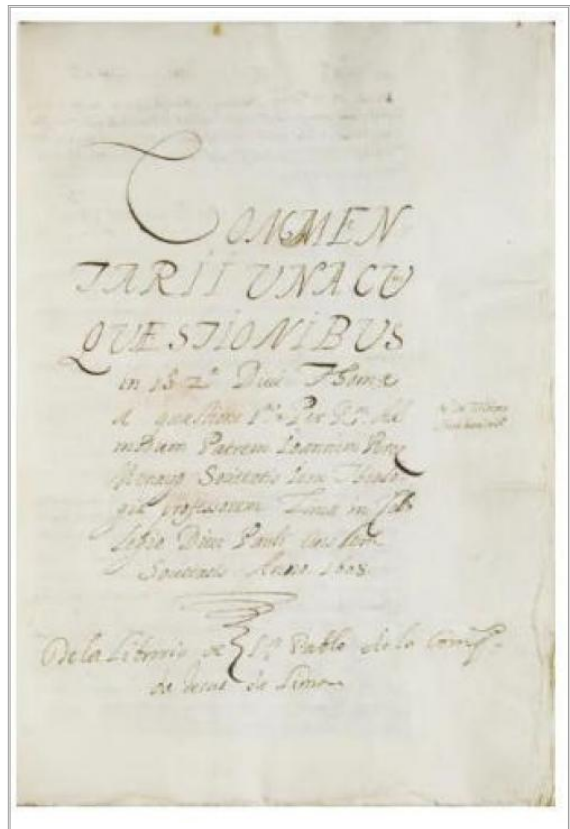 COMMEN
TARII UNA CŨ
QUÆSTIONIBUS
in 1ā 2æ Divi Thomæ
A questione 1ª Per Rm Ad
modum Patrem Ioannem Perez
Menacho Societatis Iesu Theolo
giæ professorem Limæ in Col
legio Divi Pauli eius dem
Societatis Anno 1608
De la Libreria de S. Pablo de la Comp.
de Jesus de Lima